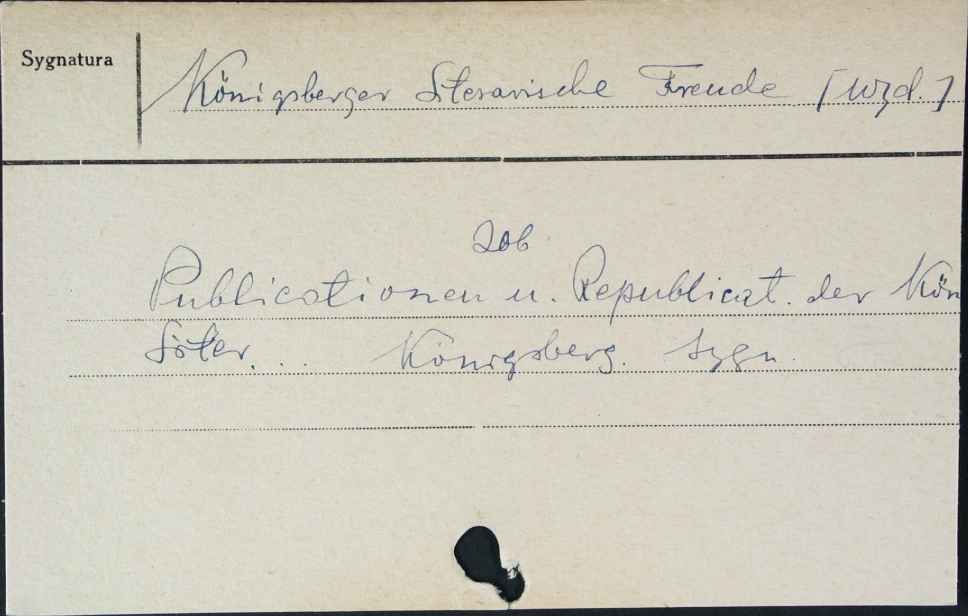 Sygnatura
Königsberger Literarische Freude [wyd.]
Zob
Publicationen u. Republicat. der Kön
Liter... Königsberg. Sygn.